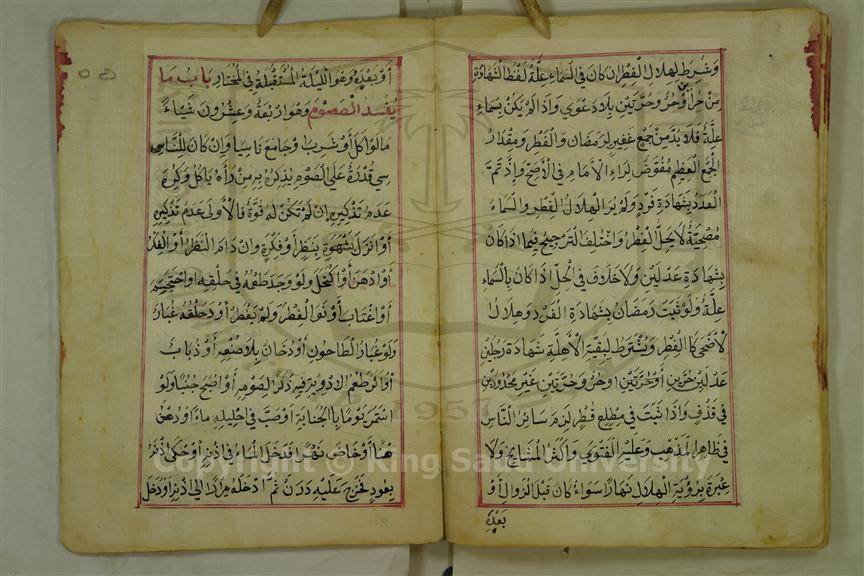 وشرط لهلال الفطر ان كان في السماء علة لفظ الشهادة
من حر او حر وحرتين بلا دعوي واذ الم يكن بسماء
علة فلا بد من جمع غفير لرمضان والفطر ومقدار
الجمع العظيم مفوض لراء الامام في الاصح واذ تم
العدد بشهادة فرد ولم ير الهلال الفطر والسماء
مصحية لا يحل الفطر واختلف الترجيح فيما اذا كان
بشهادة عدلين ولا خلاف في الحل اذا كان بالسماء
علة ولو ثبت رمضان بشهادة الفرد وهلال
لاضحي كا الفطر ويشترط لبقية الاهلة شهادة رجلين
عدلين حرين او حرتين او حر وحرتين غير محدودين
في قذف واذا ثبت في مطلع قطر لزم سائر الناس
في ظاهر المذهب وعليه الفتوي واكثر المشايخ ولا
عبرة برؤية الهلال نهارا سواء كان قبل الزوال او
بعده
٥٥
او بعده وهو الليلة المستقبلة في المختار باب ما
يفسد الصوم وهو اربعة وعشرون شياء
مالو اكل او شرب وجامع ناسيا وان كان للناس
سي قدرة علي الصوم يذكره به من رأه ياكل وكره
عدم تذكيره ان لم تكن له قوة فالاولى عدم تذكيره
او انزل بشهوة بنظر او فكرة وان دام النظر او الفكر
او ادهن او اكتحل ولو وجد طعمه في حلقه او احتجم
او اغتاب او نوا الفطر ولم يفطر او دخل حلقه غبار
ولو غبار الطاحون او دخان بلا صنعه او ذباب
او اثر طعم الادوية فيه ذكر الصومه او اصبح جنبا ولو
استمر يوما با الجنابة او صب في احليله ماء او دهن
هنا او خاض نهرا فدخل الماء في اذنه او حكى اذنه
بعود فخرج عليه درن ثم ادخله مرارا الى اذنه او دخل
1957
Copyright © King Saud University